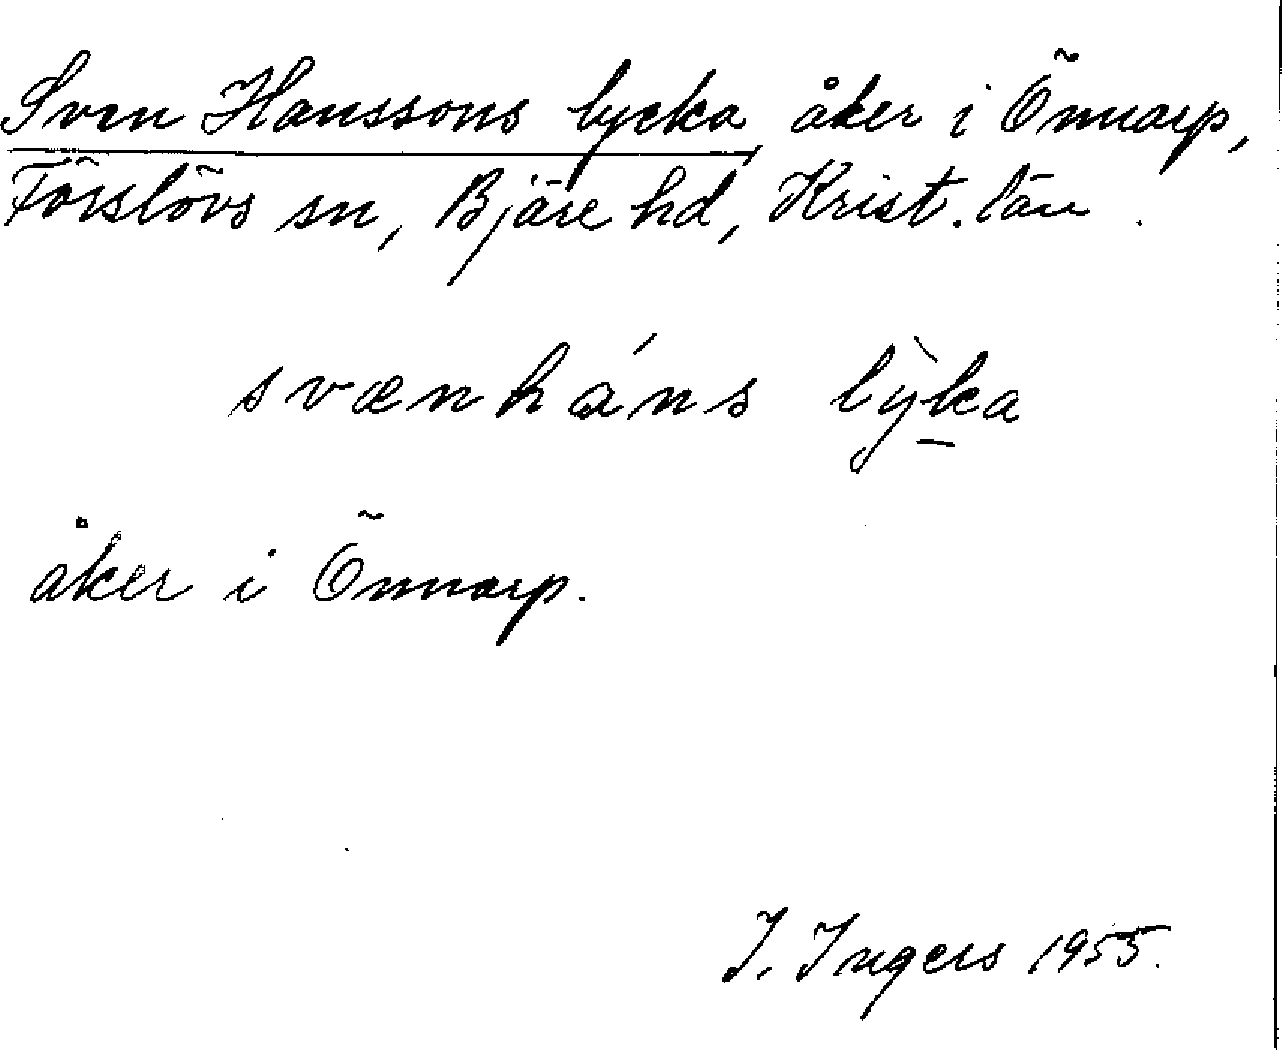 Sven Hanssons lycka, åker i Önnarp,
Förslövs sn, Bjäre hd, Krist. län.
svænháns lỳka
åker i Önnarp.
I. Ingers 1955.